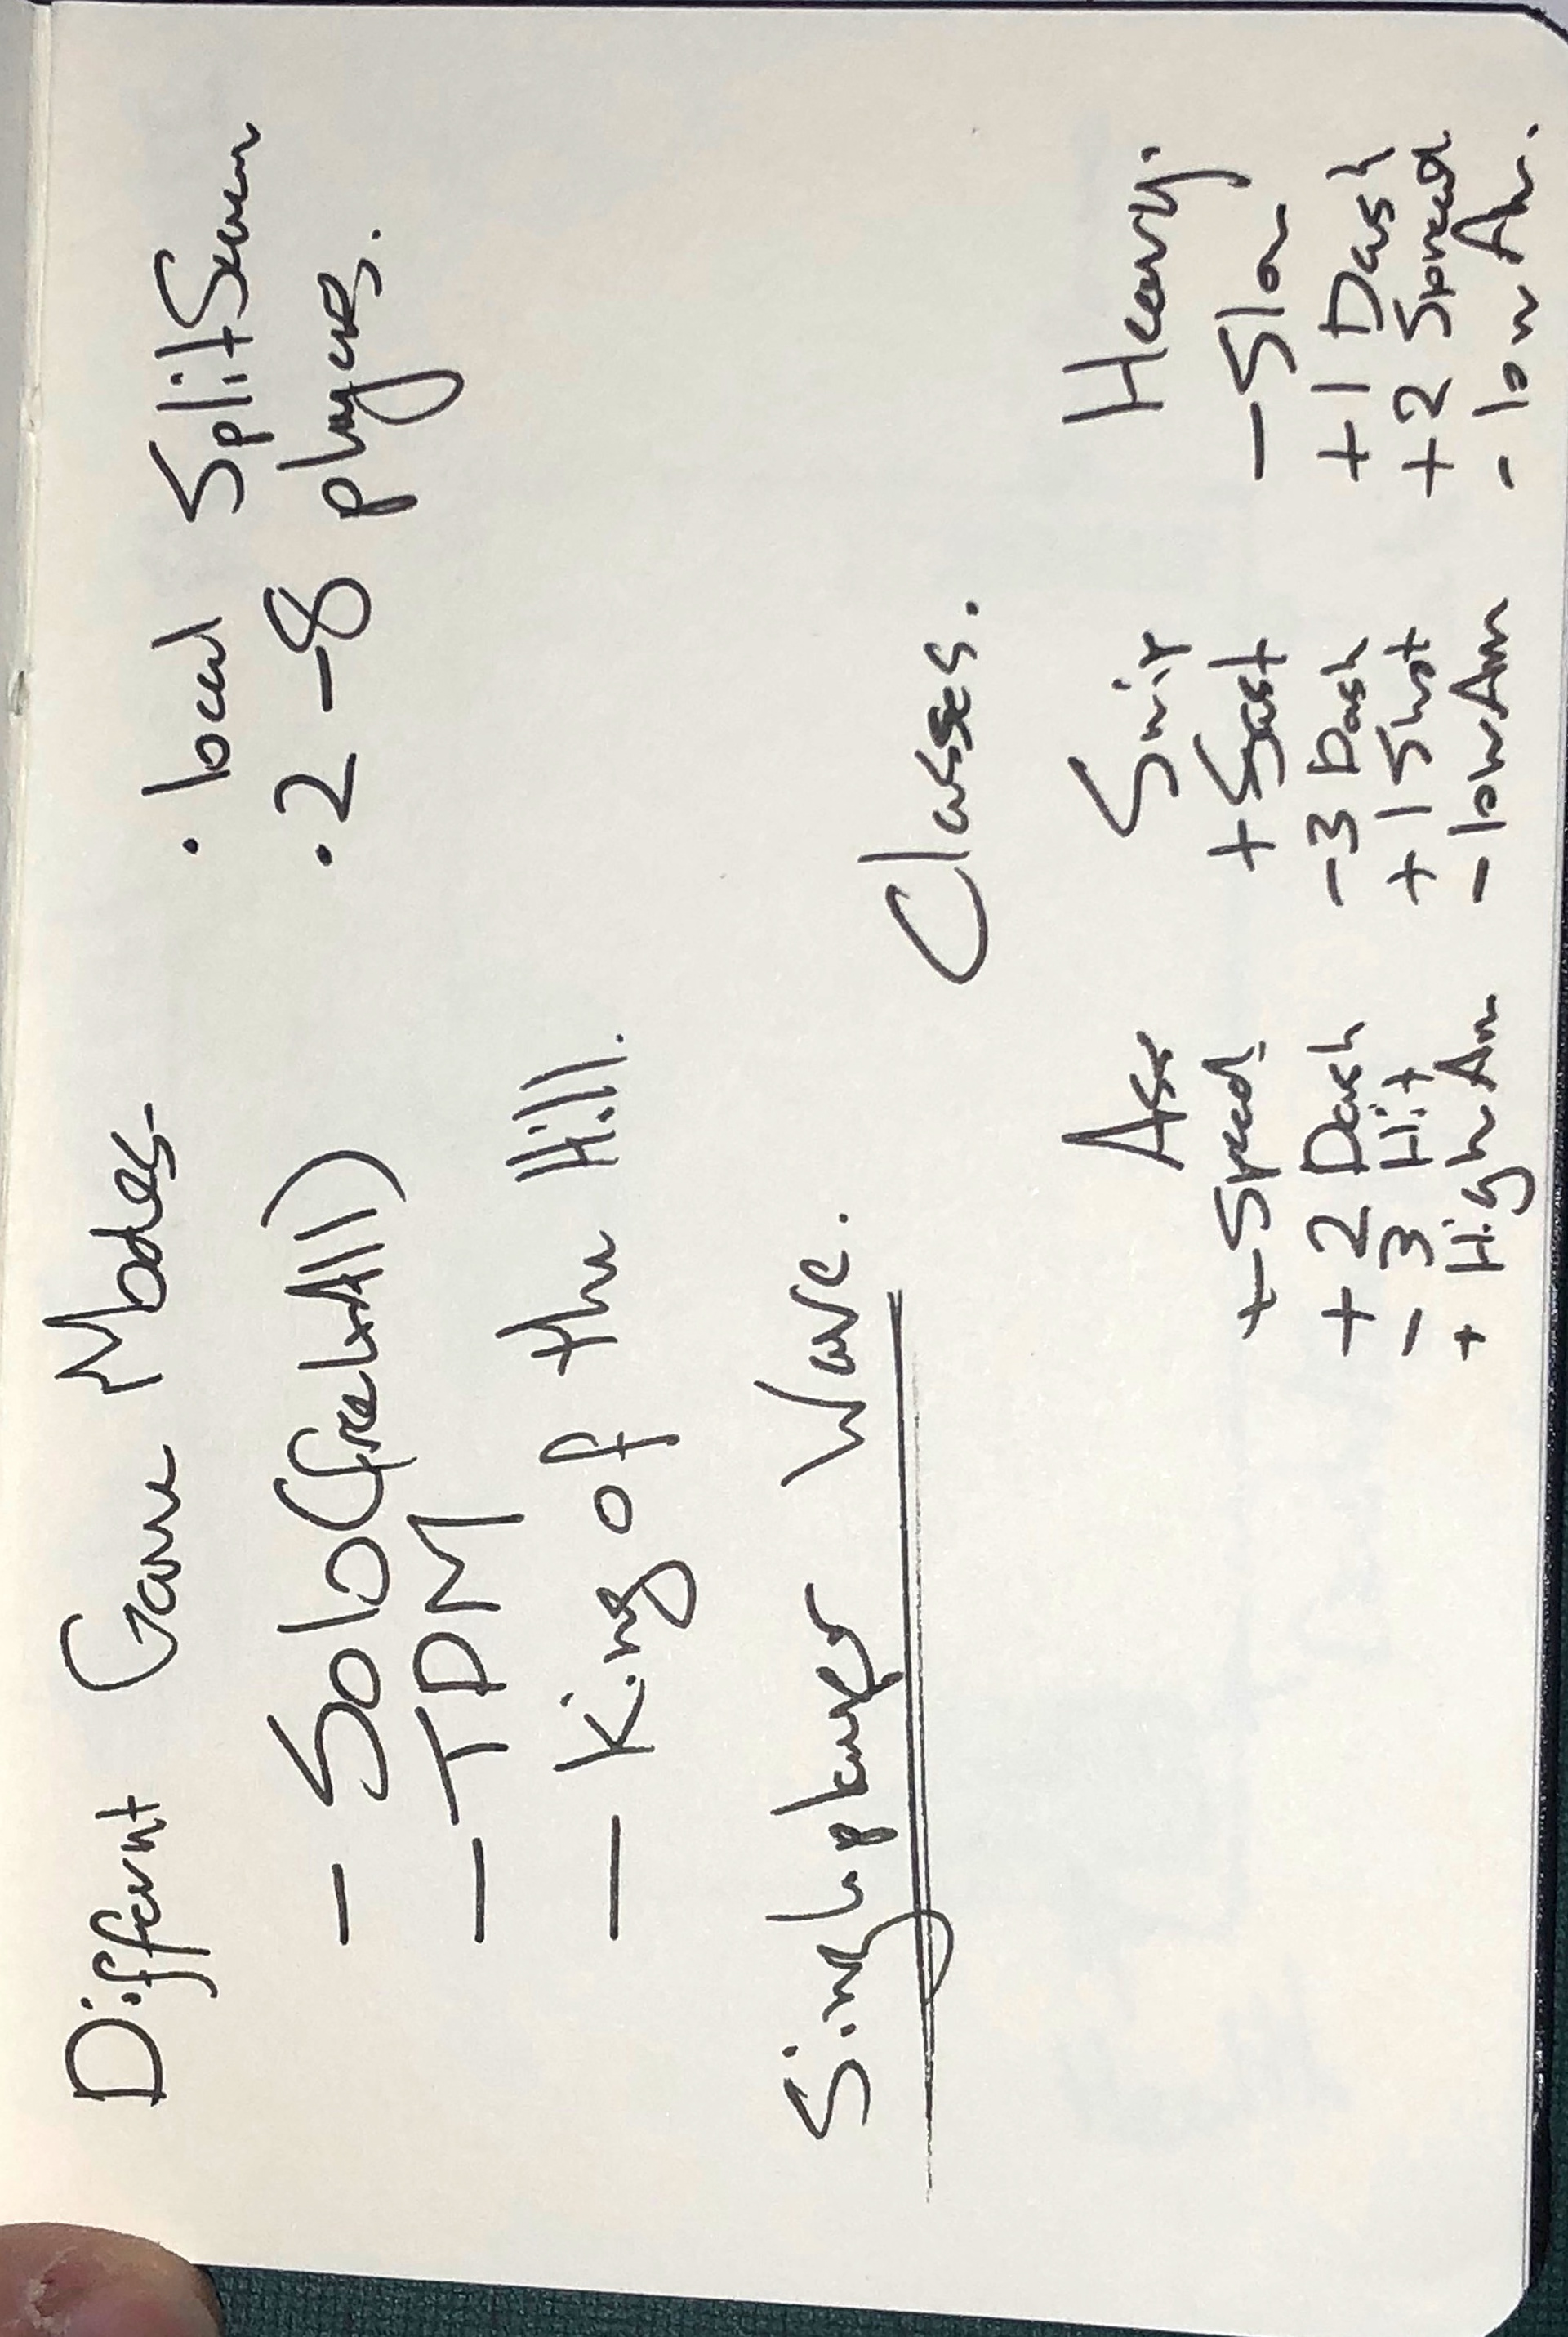 Different Game Modes.
- Solo (free4All)
- TDM
- King of the Hill.
· local Split Screen
· 2 - 8 players.
Singleplayer Wave.
Classes.
Ass
+ Speed
+ 2 Dash
- 3 Hit
+ High Am
Snip
+ Fast
- 3 Dash
+ 1 Shot
- low Am
Heavy.
- Slow
+ 1 Dash
+ 2 Spread
- low Am.